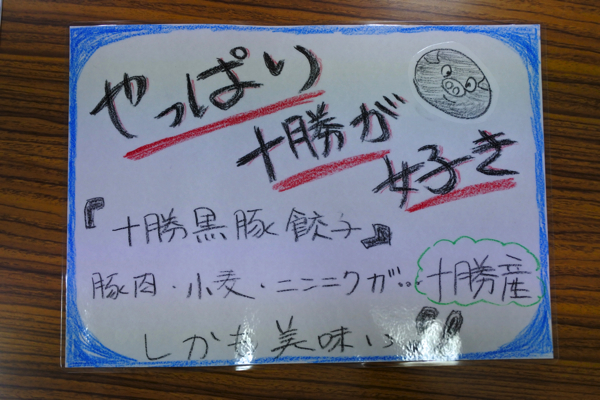 やっぱり
十勝が
好き
『十勝黒豚餃子』
豚肉・小麦・ニンニクが‥十勝産
しかも美味い!!